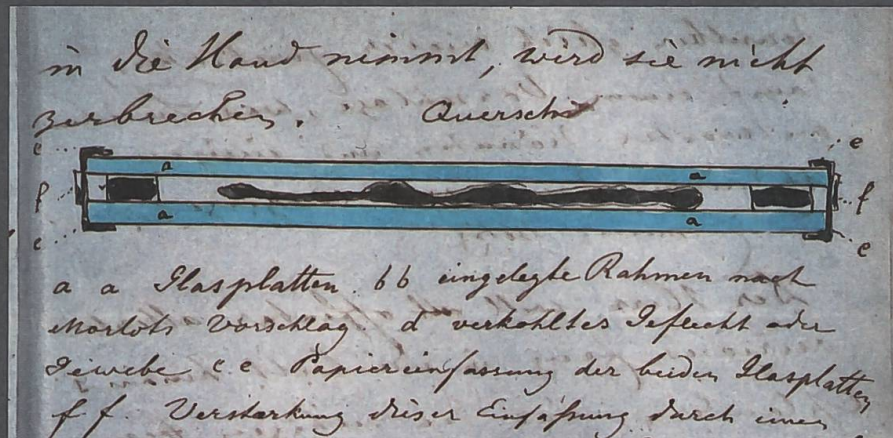 in die Hand nimmt, wird sie nicht
zerbrechen. Querschn
e a a e
f f
e a a e
a a Glasplatten. bb eingelegte Rahmen nach
Morlots Vorschlag. d verkohltes Geflecht oder
Gewebe e e Papiereinfassung der beiden Glasplatten
f f. Verstärkung dieser Einfassung durch einen